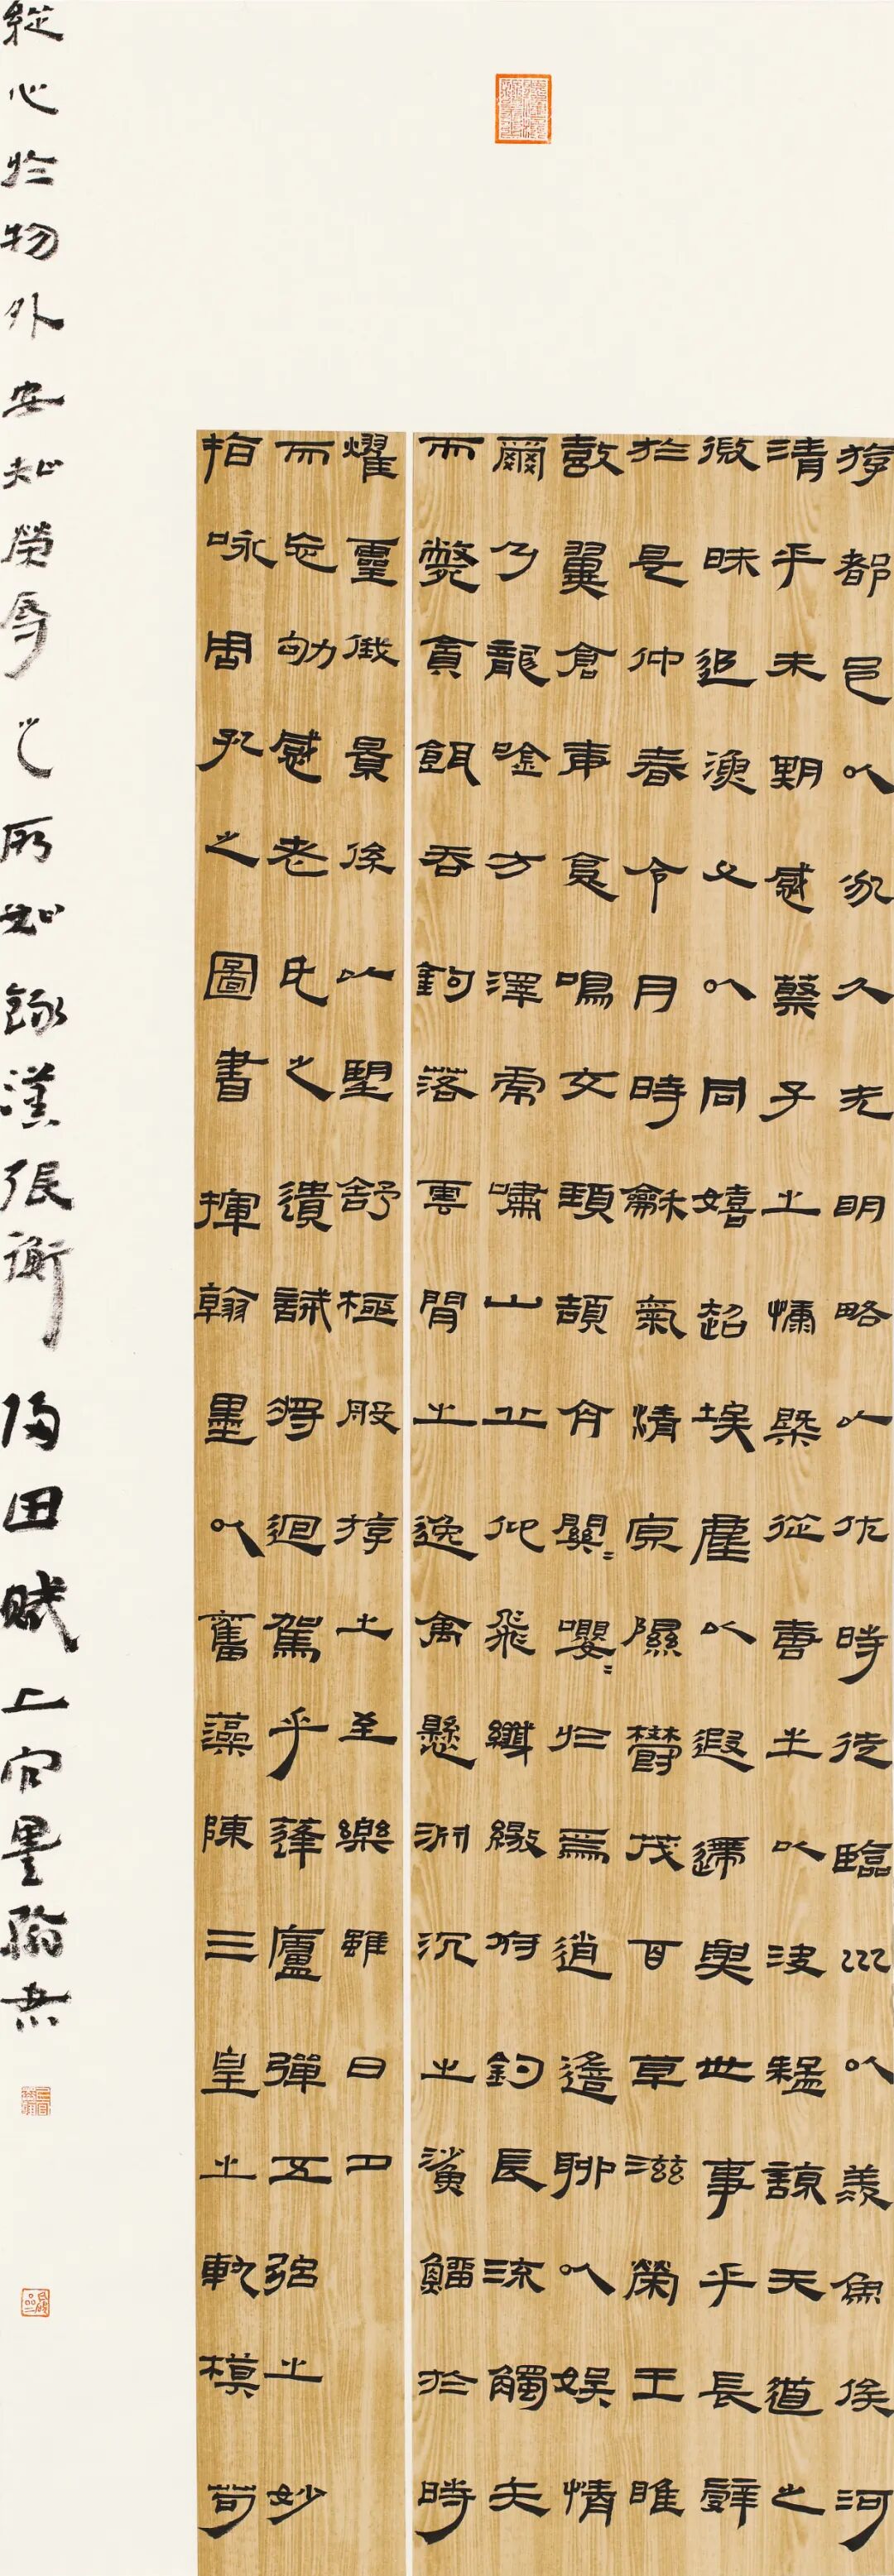 游都邑以永久无明略以佐時徒臨川以羨魚俟河
清乎未期感蔡子之慷慨從唐生以決疑諒天道之
微昧追漁父以同嬉超埃塵以遐逝與世事乎長辭
於是仲春令月時龢氣清原隰鬱茂百草滋榮王雎
鼓翼倉庚哀鳴交頸頡頏關〻嚶〻於焉逍遙聊以娛情
爾乃龍唫方澤虎嘯山丘仰飛纖繳俯釣長流觸矢
而斃貪餌吞鉤落雲間之逸禽懸淵沉之鯊鰡於時
耀靈俄景係以望舒極般游之至樂雖日夕
而忘劬感老氏之遺誡將迴駕乎蓬廬彈五弦之妙
指咏周孔之圖書揮翰墨以奮藻陳三皇之軌模苟
縱心於物外安知榮辱之所如錄漢張衡歸田賦上官墨翰書